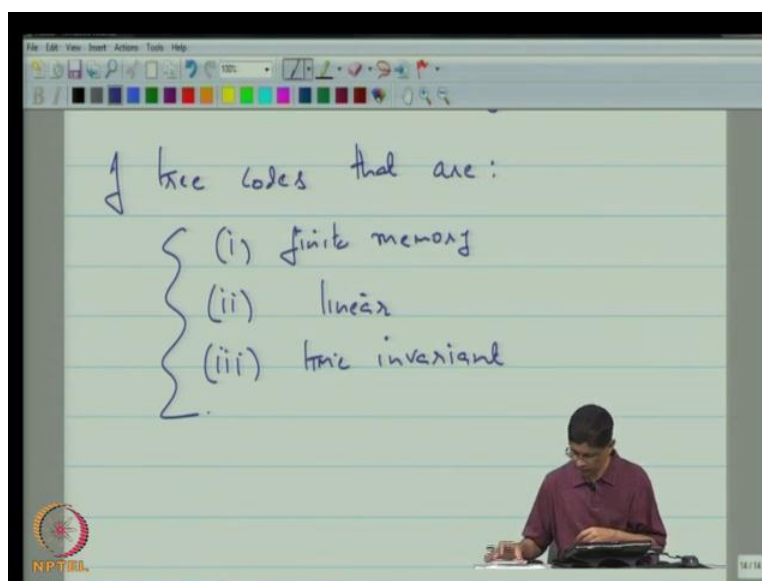 File Edit View Insert Actions Tools Help
100%
B I
of tree codes that are:
(i) finite memory
(ii) linear
(iii) time invariant
NPTEL
14 / 14